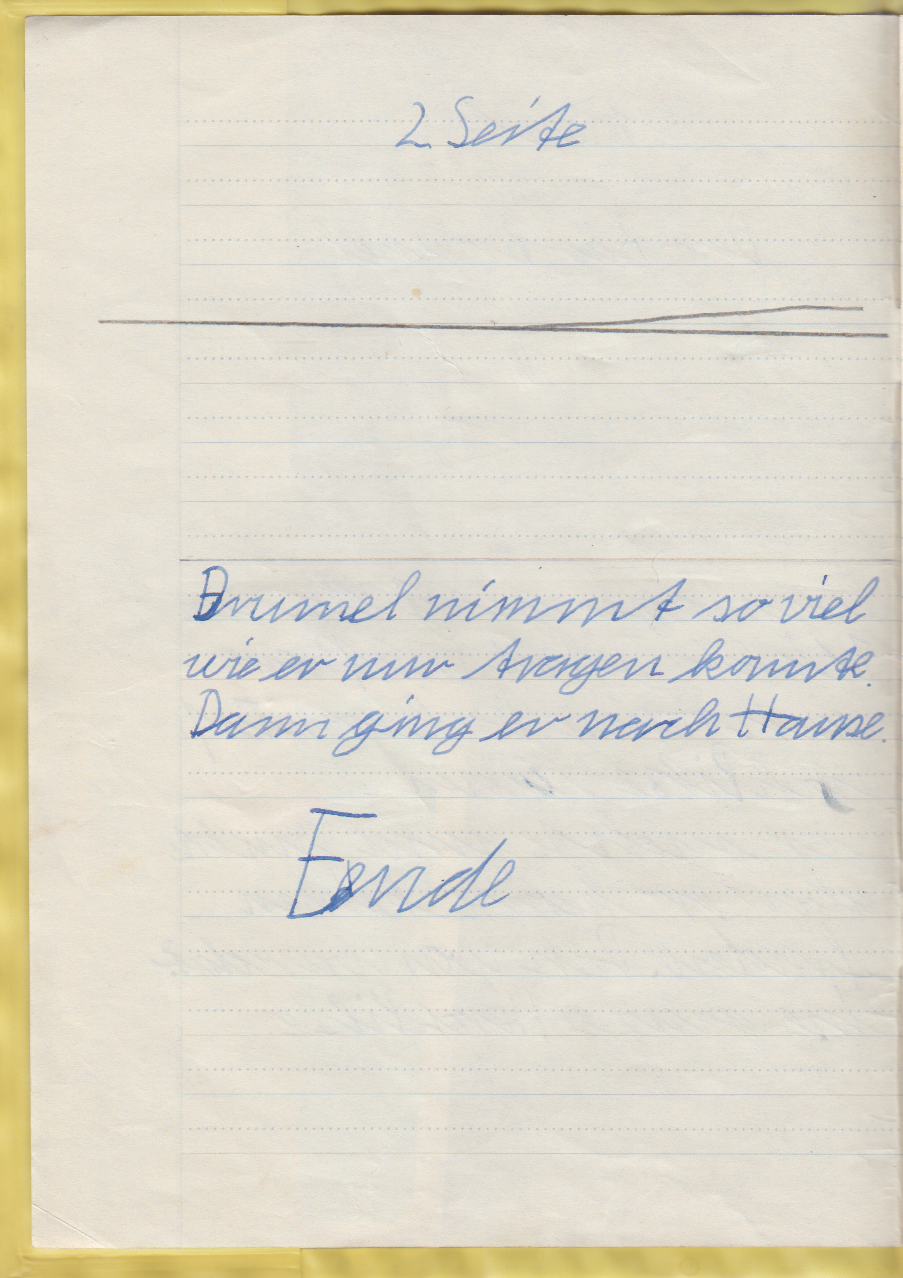 2. Seite
Brumel nimmt so viel
wie er nur tragen konnte.
Dann ging er nach Hause.
Ende